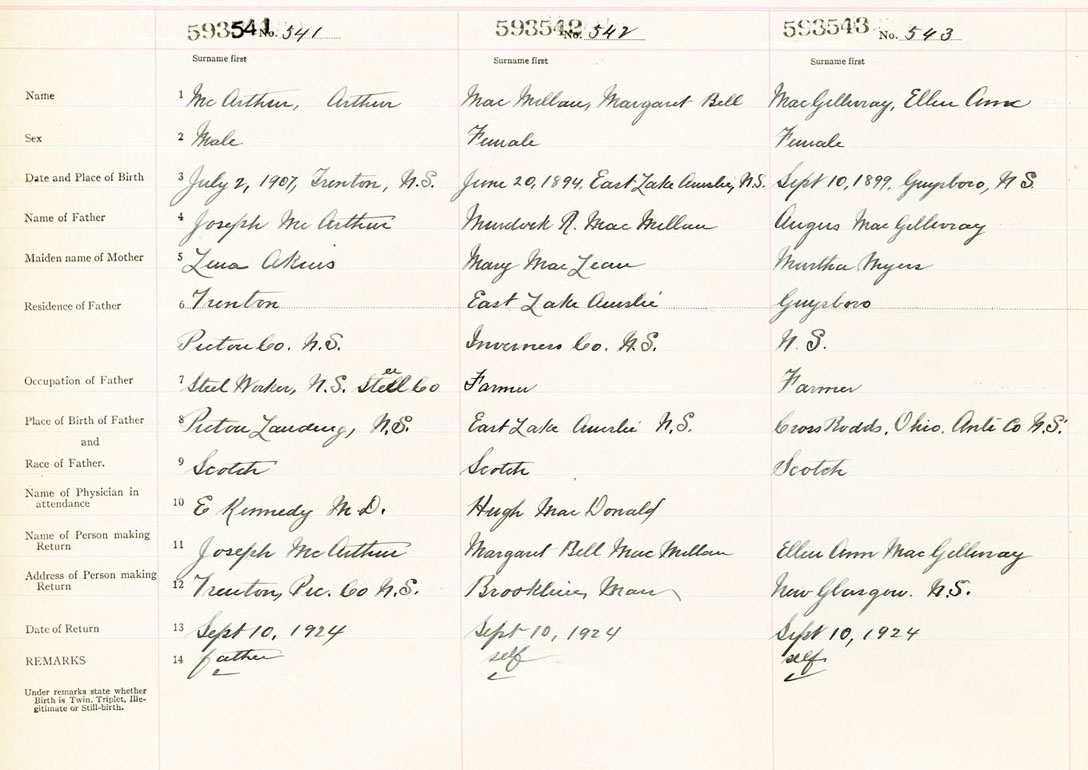 593541 No. 541 593542 No. 542 593543 No. 543
Surname first Surname first Surname first
Name 1 Mc Arthur, Arthur Mac Millan, Margaret Bell MacGillivray, Ellen Ann
Sex 2 Male Female Female
Date and Place of Birth 3 July 2, 1907, Trenton, N.S. June 20, 1894, East Lake Ainslie, N.S. Sept 10, 1899, Guysboro, N.S.
Name of Father 4 Joseph Mc Arthur Murdock R. Mac Millan Angus MacGillivray
Maiden name of Mother 5 Lena Akins Mary MacLean Martha Myers
Residence of Father 6 Trenton East Lake Ainslie Guysboro
Pictou Co. N.S. Inverness Co. N.S. N.S.
Occupation of Father 7 Steel Worker, N.S. Steel Co Farmer Farmer
Place of Birth of Father 8 Pictou Landing, N.S. East Lake Ainslie N.S. Cross Rodds, Ohio, Anti Co N.S.
and
Race of Father. 9 Scotch Scotch Scotch
Name of Physician in
attendance 10 E Kennedy M.D. Hugh MacDonald
Name of Person making
Return 11 Joseph Mc Arthur Margaret Bell Mac Millan Ellen Ann MacGillivray
Address of Person making
Return 12 Trenton, Pic. Co N.S. Brookline, Mass New Glasgow. N.S.
Date of Return 13 Sept 10, 1924 Sept 10, 1924 Sept 10, 1924
REMARKS 14 father self self
Under remarks state whether
Birth is Twin, Triplet, Ille-
gitimate or Still-birth.